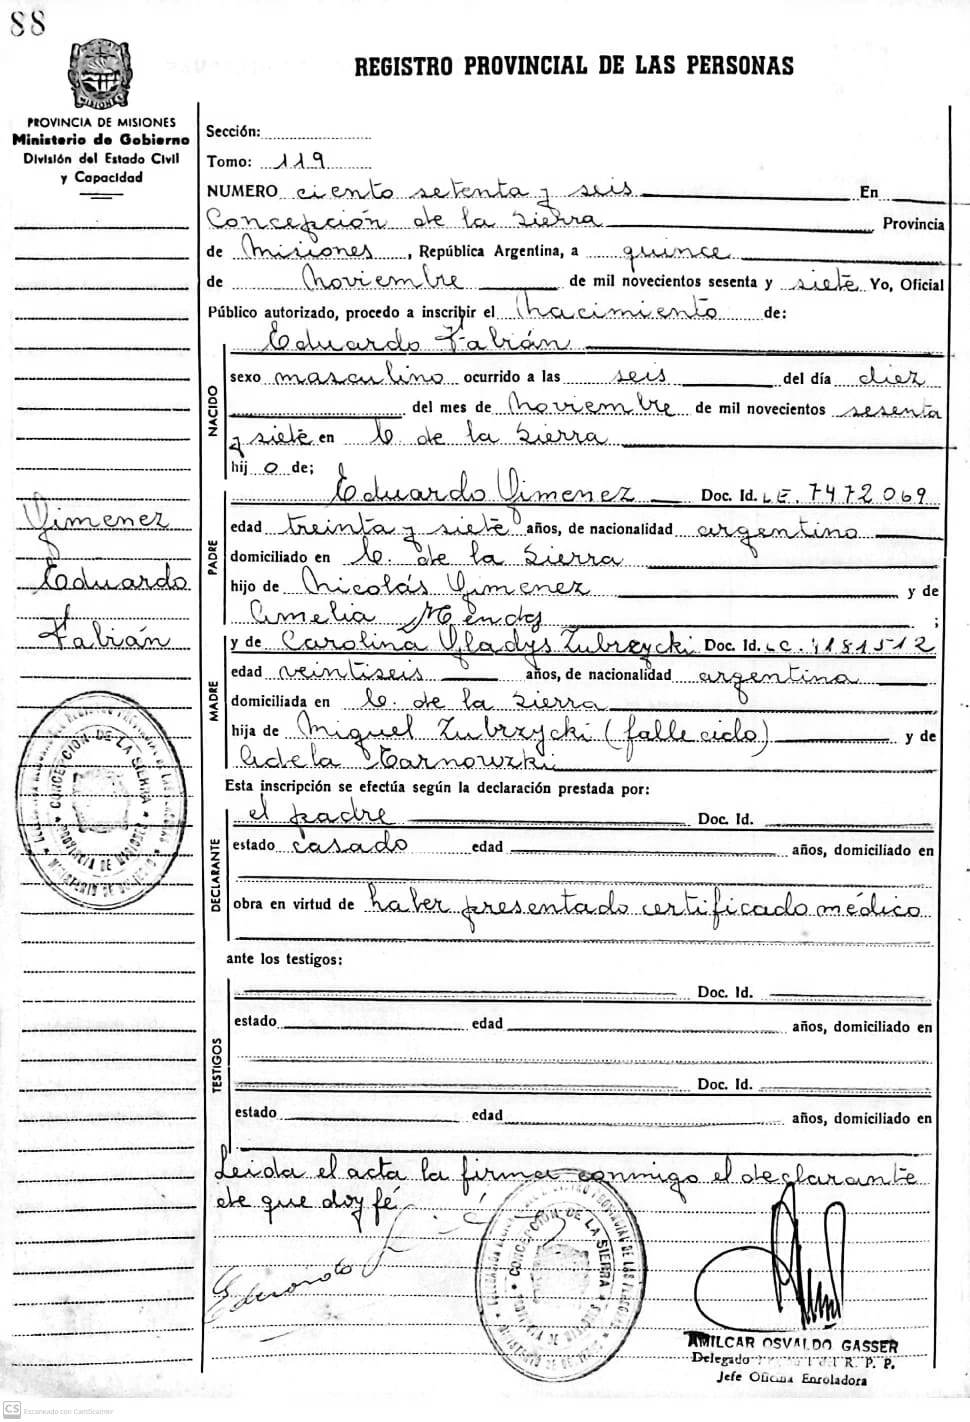 88
PROVINCIA DE MISIONES
Ministerio de Gobierno
División del Estado Civil
y Capacidad
REGISTRO PROVINCIAL DE LAS PERSONAS
Sección:
Tomo: 119
NUMERO ciento setenta y seis En
Concepción de la Sierra Provincia
de Misiones, República Argentina, a quince
de Noviembre de mil novecientos sesenta y siete Yo, Oficial
Público autorizado, procedo a inscribir el Nacimiento de:
Eduardo Fabián
NACIDO
sexo masculino ocurrido a las seis del día diez
del mes de Noviembre de mil novecientos sesenta
y siete en C. de la Sierra
hijo de;
PADRE
Eduardo Gimenez Doc. Id. L.E. 7472069
edad treinta y siete años, de nacionalidad argentino
domiciliado en C. de la Sierra
hijo de Nicolás Gimenez y de
Amelia Mendez ;
MADRE
y de Carolina Gladys Zubrzycki Doc. Id. L.C. 1181512
edad veintiseis años, de nacionalidad argentina
domiciliada en C. de la Sierra
hija de Miguel Zubrzycki (fallecido) y de
Adela Tarnowzki
Esta inscripción se efectúa según la declaración prestada por:
DECLARANTE
el padre Doc. Id.
estado casado edad años, domiciliado en
obra en virtud de haber presentado certificado médico
ante los testigos:
TESTIGOS
Doc. Id.
estado edad años, domiciliado en
Doc. Id.
estado edad años, domiciliado en
Leida el acta la firma conmigo el declarante
de que doy fé
Eduardo
Gimenez
Eduardo
Fabián
CONCEPCIÓN DE LA SIERRA
PROVINCIA DE MISIONES
CONCEPCIÓN DE LA SIERRA
AMILCAR OSVALDO GASSER
Delegado R. P. P.
Jefe Oficina Enroladora
CS Escaneado con CamScanner